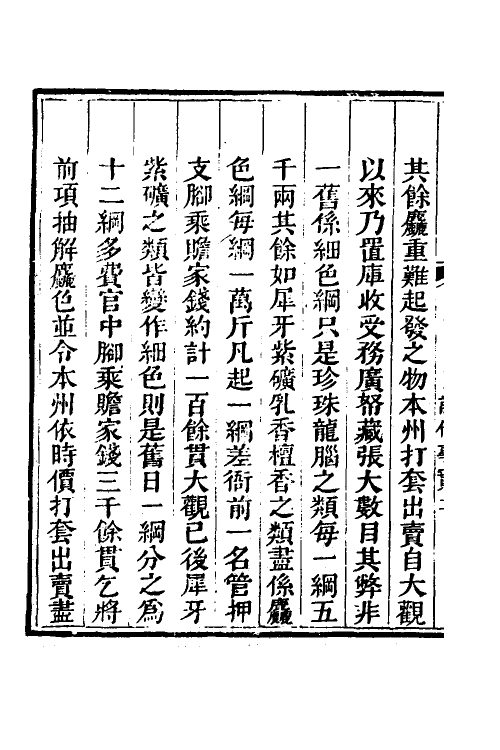 其餘麤重難起發之物本州打套出賣自大觀
以來乃置庫收受務廣帑藏張大數目其弊非
一舊係細色綱只是珍珠龍腦之類每一綱五
千兩其餘如犀牙紫礦乳香檀香之類盡係麤
色綱每綱一萬斤凡起一綱差衙前一名管押
支腳乘贍家錢約計一百餘貫大觀已後犀牙
紫礦之類皆變作細色則是舊日一綱分之爲
十二綱多費官中腳乘贍家錢三千餘貫乞將
前項抽解麤色並令本州依時價打套出賣盡